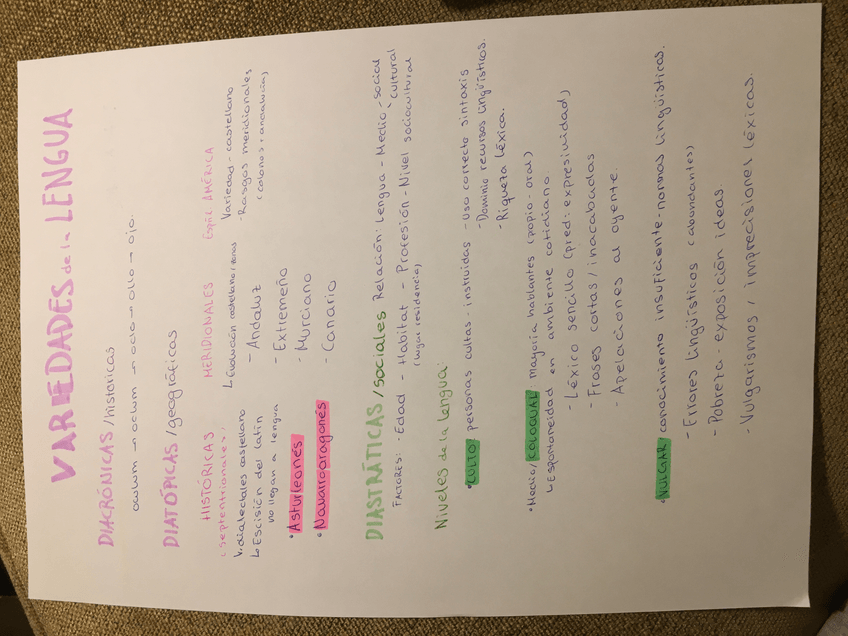 VARIEDADES de la LENGUA
DIACRÓNICAS/históricas
oculum → oclum → oclo → ollo → ojo.
DIATÓPICAS/geográficas
HISTÓRICAS
(septentrionales)
V. dialectales castellano
↳ Escisión del latín
no llegan a lengua
• Asturleonés
• Navarroaragonés
MERIDIONALES
↳ Evolución castellano/zonas
- Andaluz
- Extremeño
- Murciano
- Canario
Españ. AMÉRICA
Variedad - castellano
- Rasgos meridionales
(colonos + andalucía)
DIASTRÁTICAS/sociales Relación: Lengua - Medio - social
cultural
FACTORES: · Edad - Habitat - Profesión - Nivel sociocultural
(lugar residencia)
Niveles de la lengua:
• CULTO personas cultas - instruidas - Uso correcto sintaxis
- Dominio recursos lingüísticos.
- Riqueza léxica.
• Medio/COLOQUIAL mayoría hablantes (propio - oral)
↳ Espontaneidad en ambiente cotidiano
- Léxico sencillo (pred: expresividad)
- Frases cortas/inacabadas
- Apelaciones al oyente.
• VULGAR conocimiento insuficiente - normas lingüísticas.
- Errores lingüísticos (abundantes)
- Pobreza - exposición ideas
- Vulgarismos / imprecisiones léxicas.